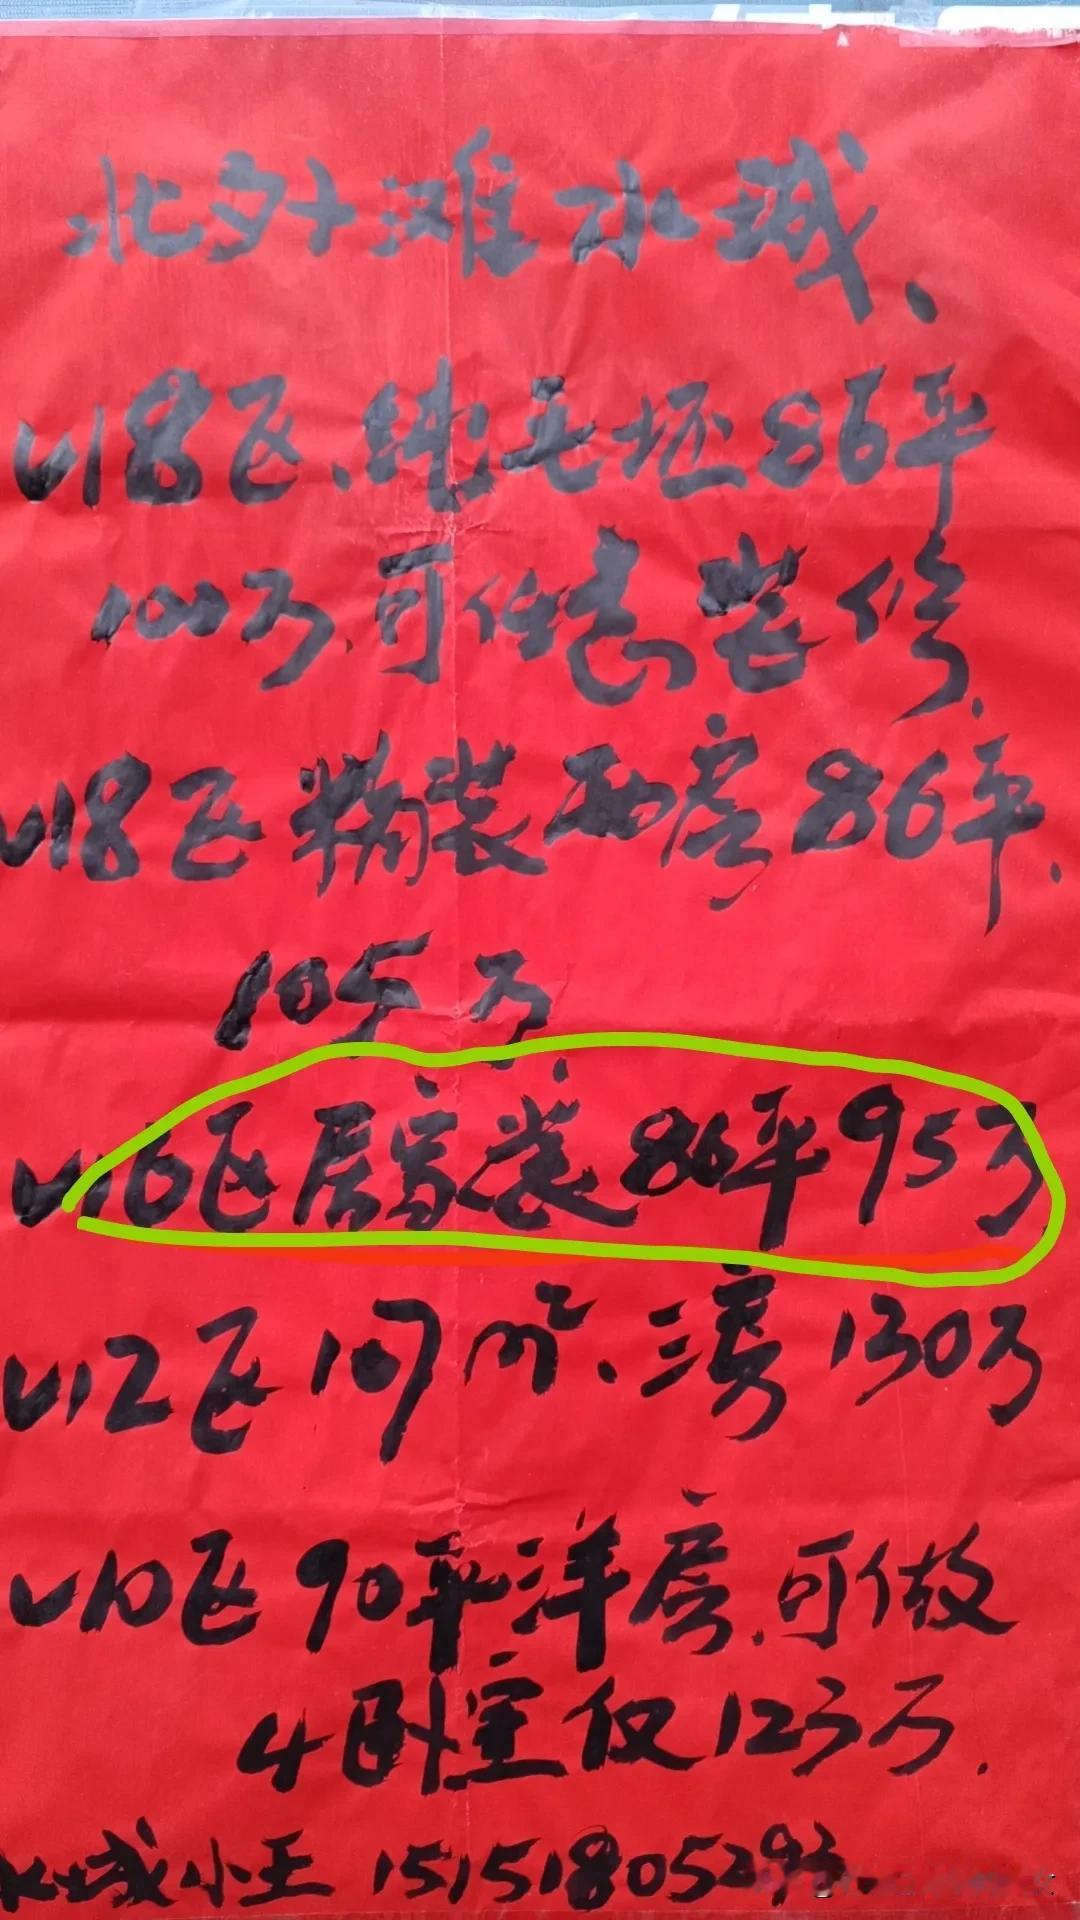 北外滩水城、
√18区、纯毛坯86平
100万.可任意装修.
√18区精装两房86平.
105万
√16区居家装86平95万
√12区107m²、三房130万
√10区90平洋房.可做
4卧室仅123万.
水城小王 15151805293.